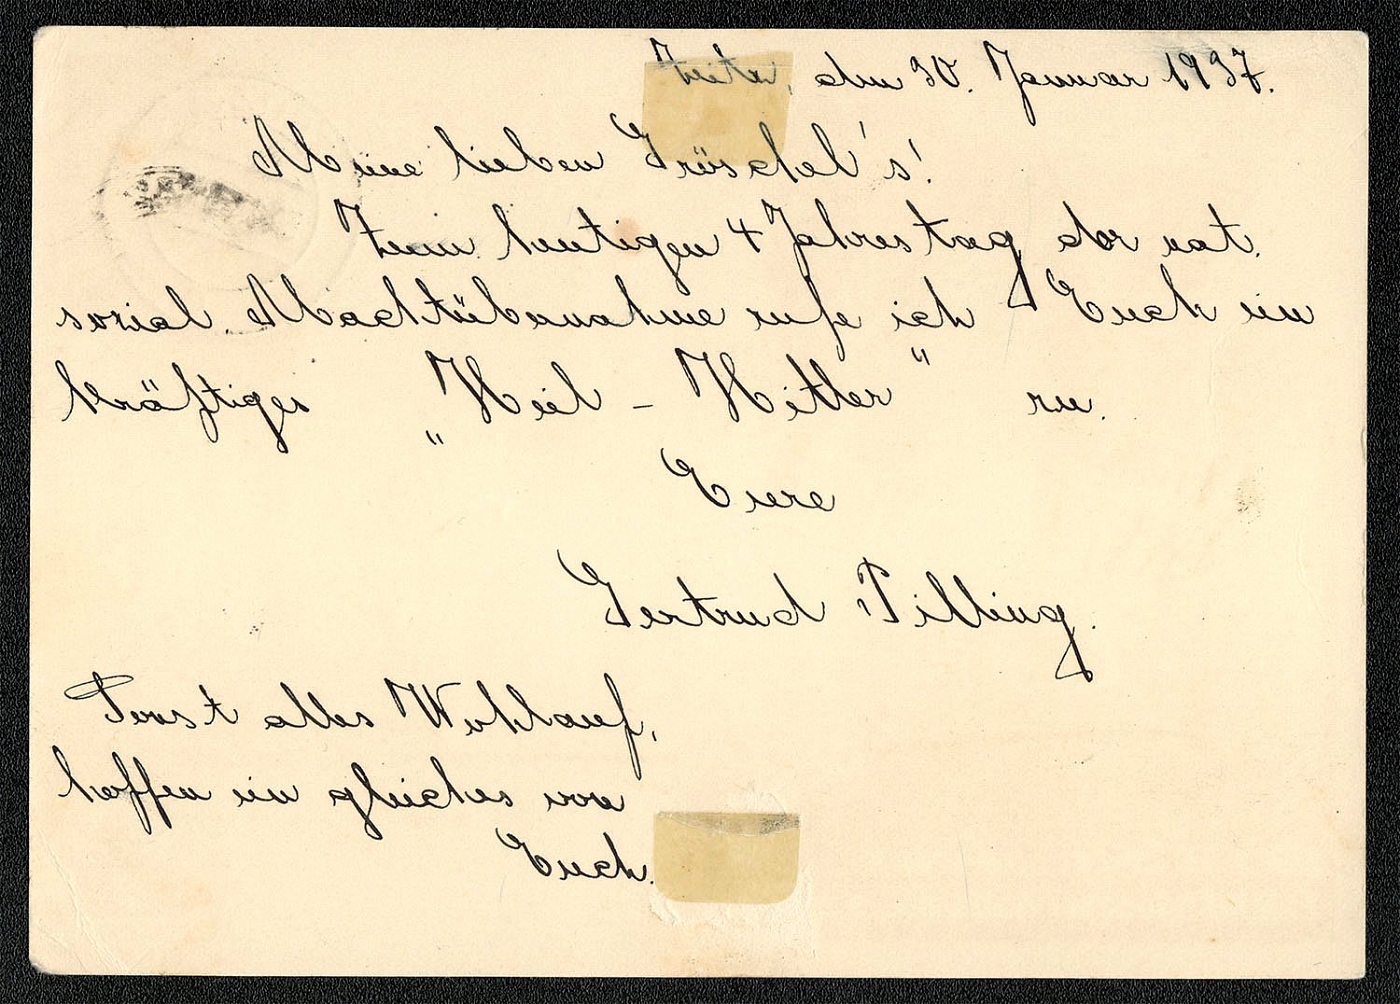 Zeitz, den 30. Januar 1937.
Meine lieben Gröschel's!
Zum heutigen 4 Jahrestag der nat.
sozial. Machtübernahme rufe ich Euch ein
kräftiges „Heil - Hitler" zu.
Eure
Gertrud Tilling.
Sonst alles Wohlauf,
hoffen ein gleiches von
Euch.